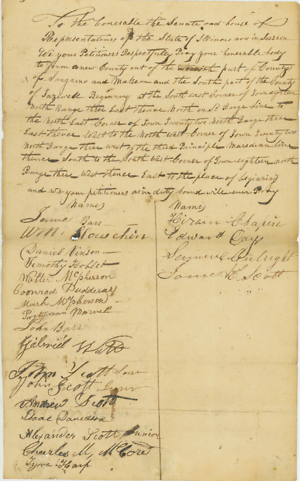 To the Honerable the Senate and house of
Representatives of the State of Illinois now in Session
We your Petitioners Respectfully Pray your honerable body
to form a new County out of the part of Countys
of Sangamo and and the South part of the County
of Tazwell Begining at the South east Corner of Town eighteen
North Range three East thence North on Sd Range line to
the North East Corner of Town Twenty two North Range three
East thence West to the North west Corner of Town Twenty two
North Range three west of the third Principle Meredian
thence South to the South west Corner of Town eighteen north
Range three West thence East to the place of begining
and we your petitioners as in duty bound will ever Pray
Names Names
James Barr
Hiram Chapin
Edward Cary
Samuel
James K Scott
Daniel Vinson
Timothy Hoblit
Walter McPherson
Coonrod
Mark McPherson
Marvel
John Barr
Gabriel Watt
John Scott Senr
John Scott Junr
Andrew Scott
Isaac Davidson
Alexander Scott Junior
Charles M. McCord
Harp